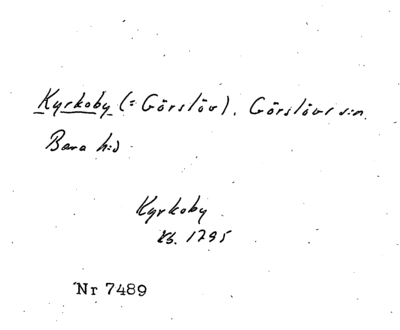 Kyrkoby (= Görslöv). Görslövs s:n.
Bara h:d
Kyrkoby
Kb. 1795
Nr 7489